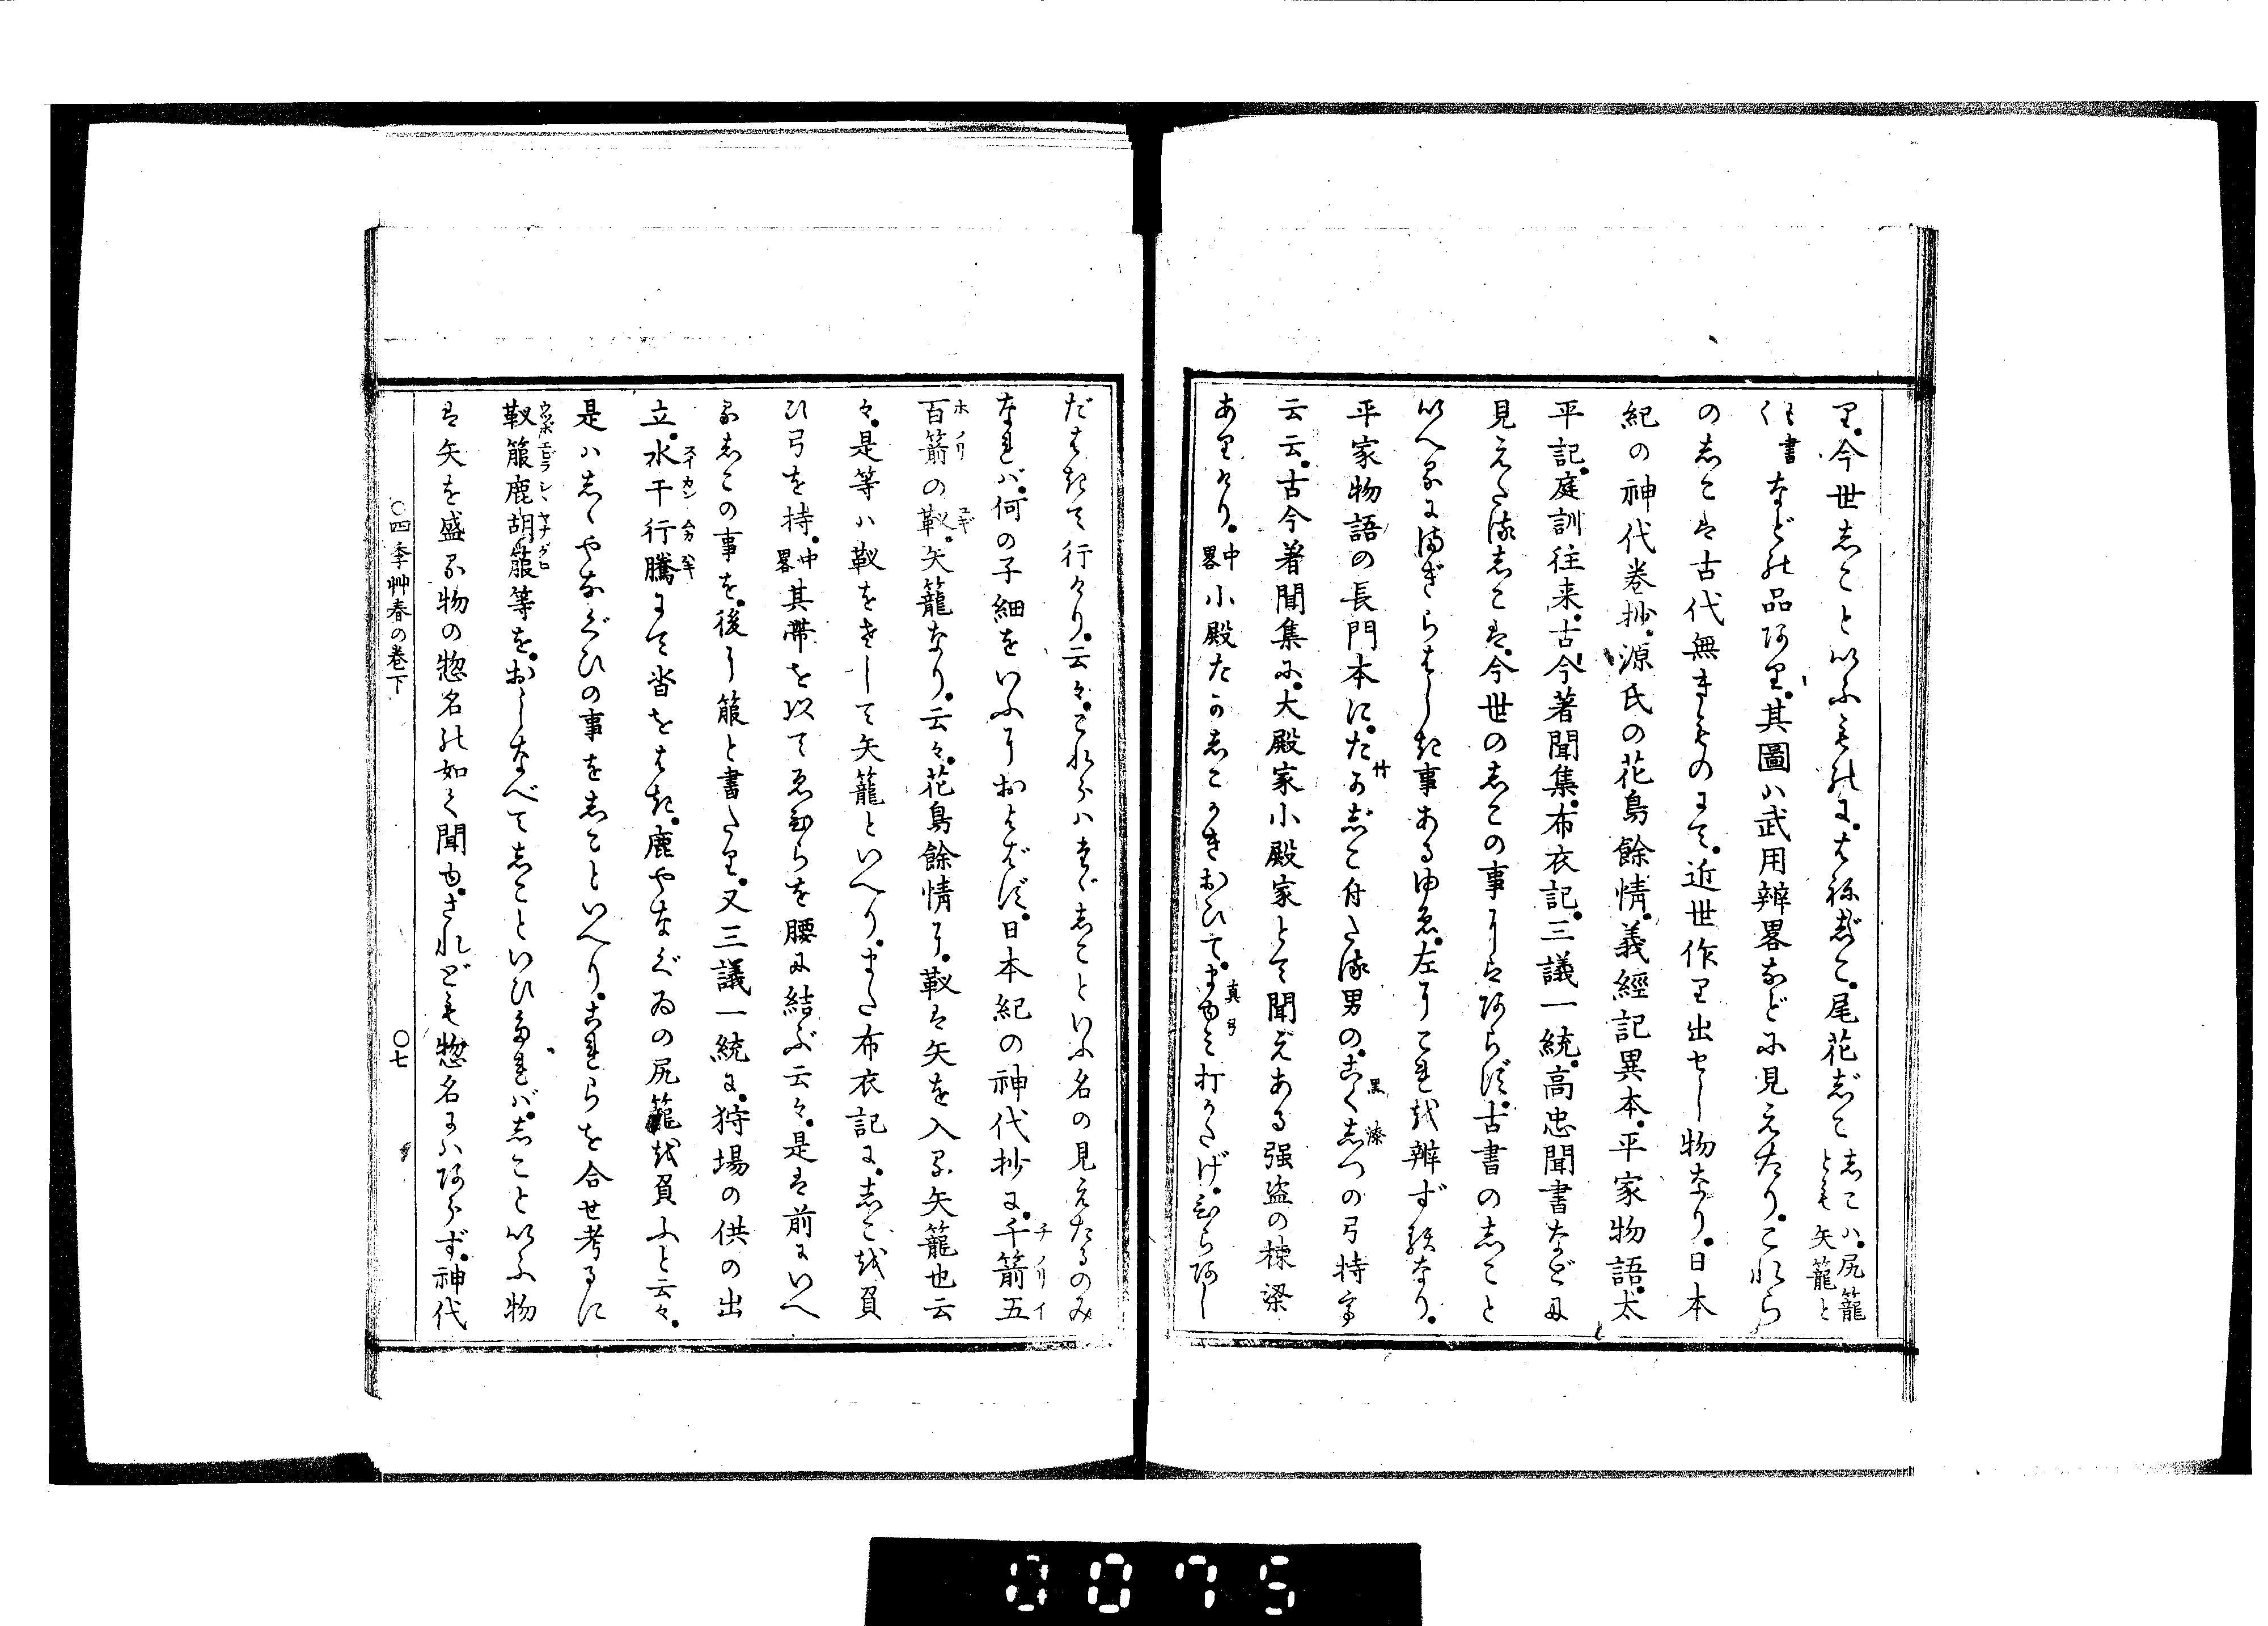 り。今世しこといふものに。はねじこ。尾花じこ しこハ。尻籠とも矢籠と
も書く などの品あり。其圖ハ武用辨畧などに見えたり。これら
のしこは古代無きものにて。近世作り出せし物なり。日本
紀の神代巻抄。源氏の花鳥餘情。義經記異本。平家物語。太
平記。庭訓往来。古今著聞集。布衣記。三議一統。高忠聞書などに
見えたるしこは。今世のしこの事にはあらず。古書のしこと
いへるにまぎらはしき事あるゆゑ。左にこれを辨ず
平家物語の長門本に。たかじこ付たる男の。こくしつの弓持
云云。古今著聞集に。大殿家小殿家とて聞えある强盗の棟梁
ありけり。中畧 小殿たかしこかきおひて。まゆミ打かたげ。
だはきて行けり。云々。これらハたゞしこといふ名の見えたるのみ
なれバ。何の子細をいふにおよばず。日本紀の神代抄に。千箭五
百箭の靫。矢籠なり。云々。花鳥餘情に。靫は矢を入る矢籠也云
々。是等ハ靫をさして矢籠といへり。また布衣記に。しこを負
ひ弓を持。中畧 其帶を以てゑびらを腰に結ぶ云々。是は前にいへ
るしこの事を。後に箙と書たり。又三議一統に。狩場の供の出
立。水干行騰にて沓をはき。鹿やなぐゐの尻籠を負ふと云々。
是ハしゝやなぐひの事をしこといへり。これらを合せ考るに
靫箙鹿胡籙等を。おしなべてしこといひたれバ。しこといふ物
は矢を盛る物の惣名の如く聞ゆ。されども惣名にハあらず。神代
〇四季艸春の巻下
〇七
0075